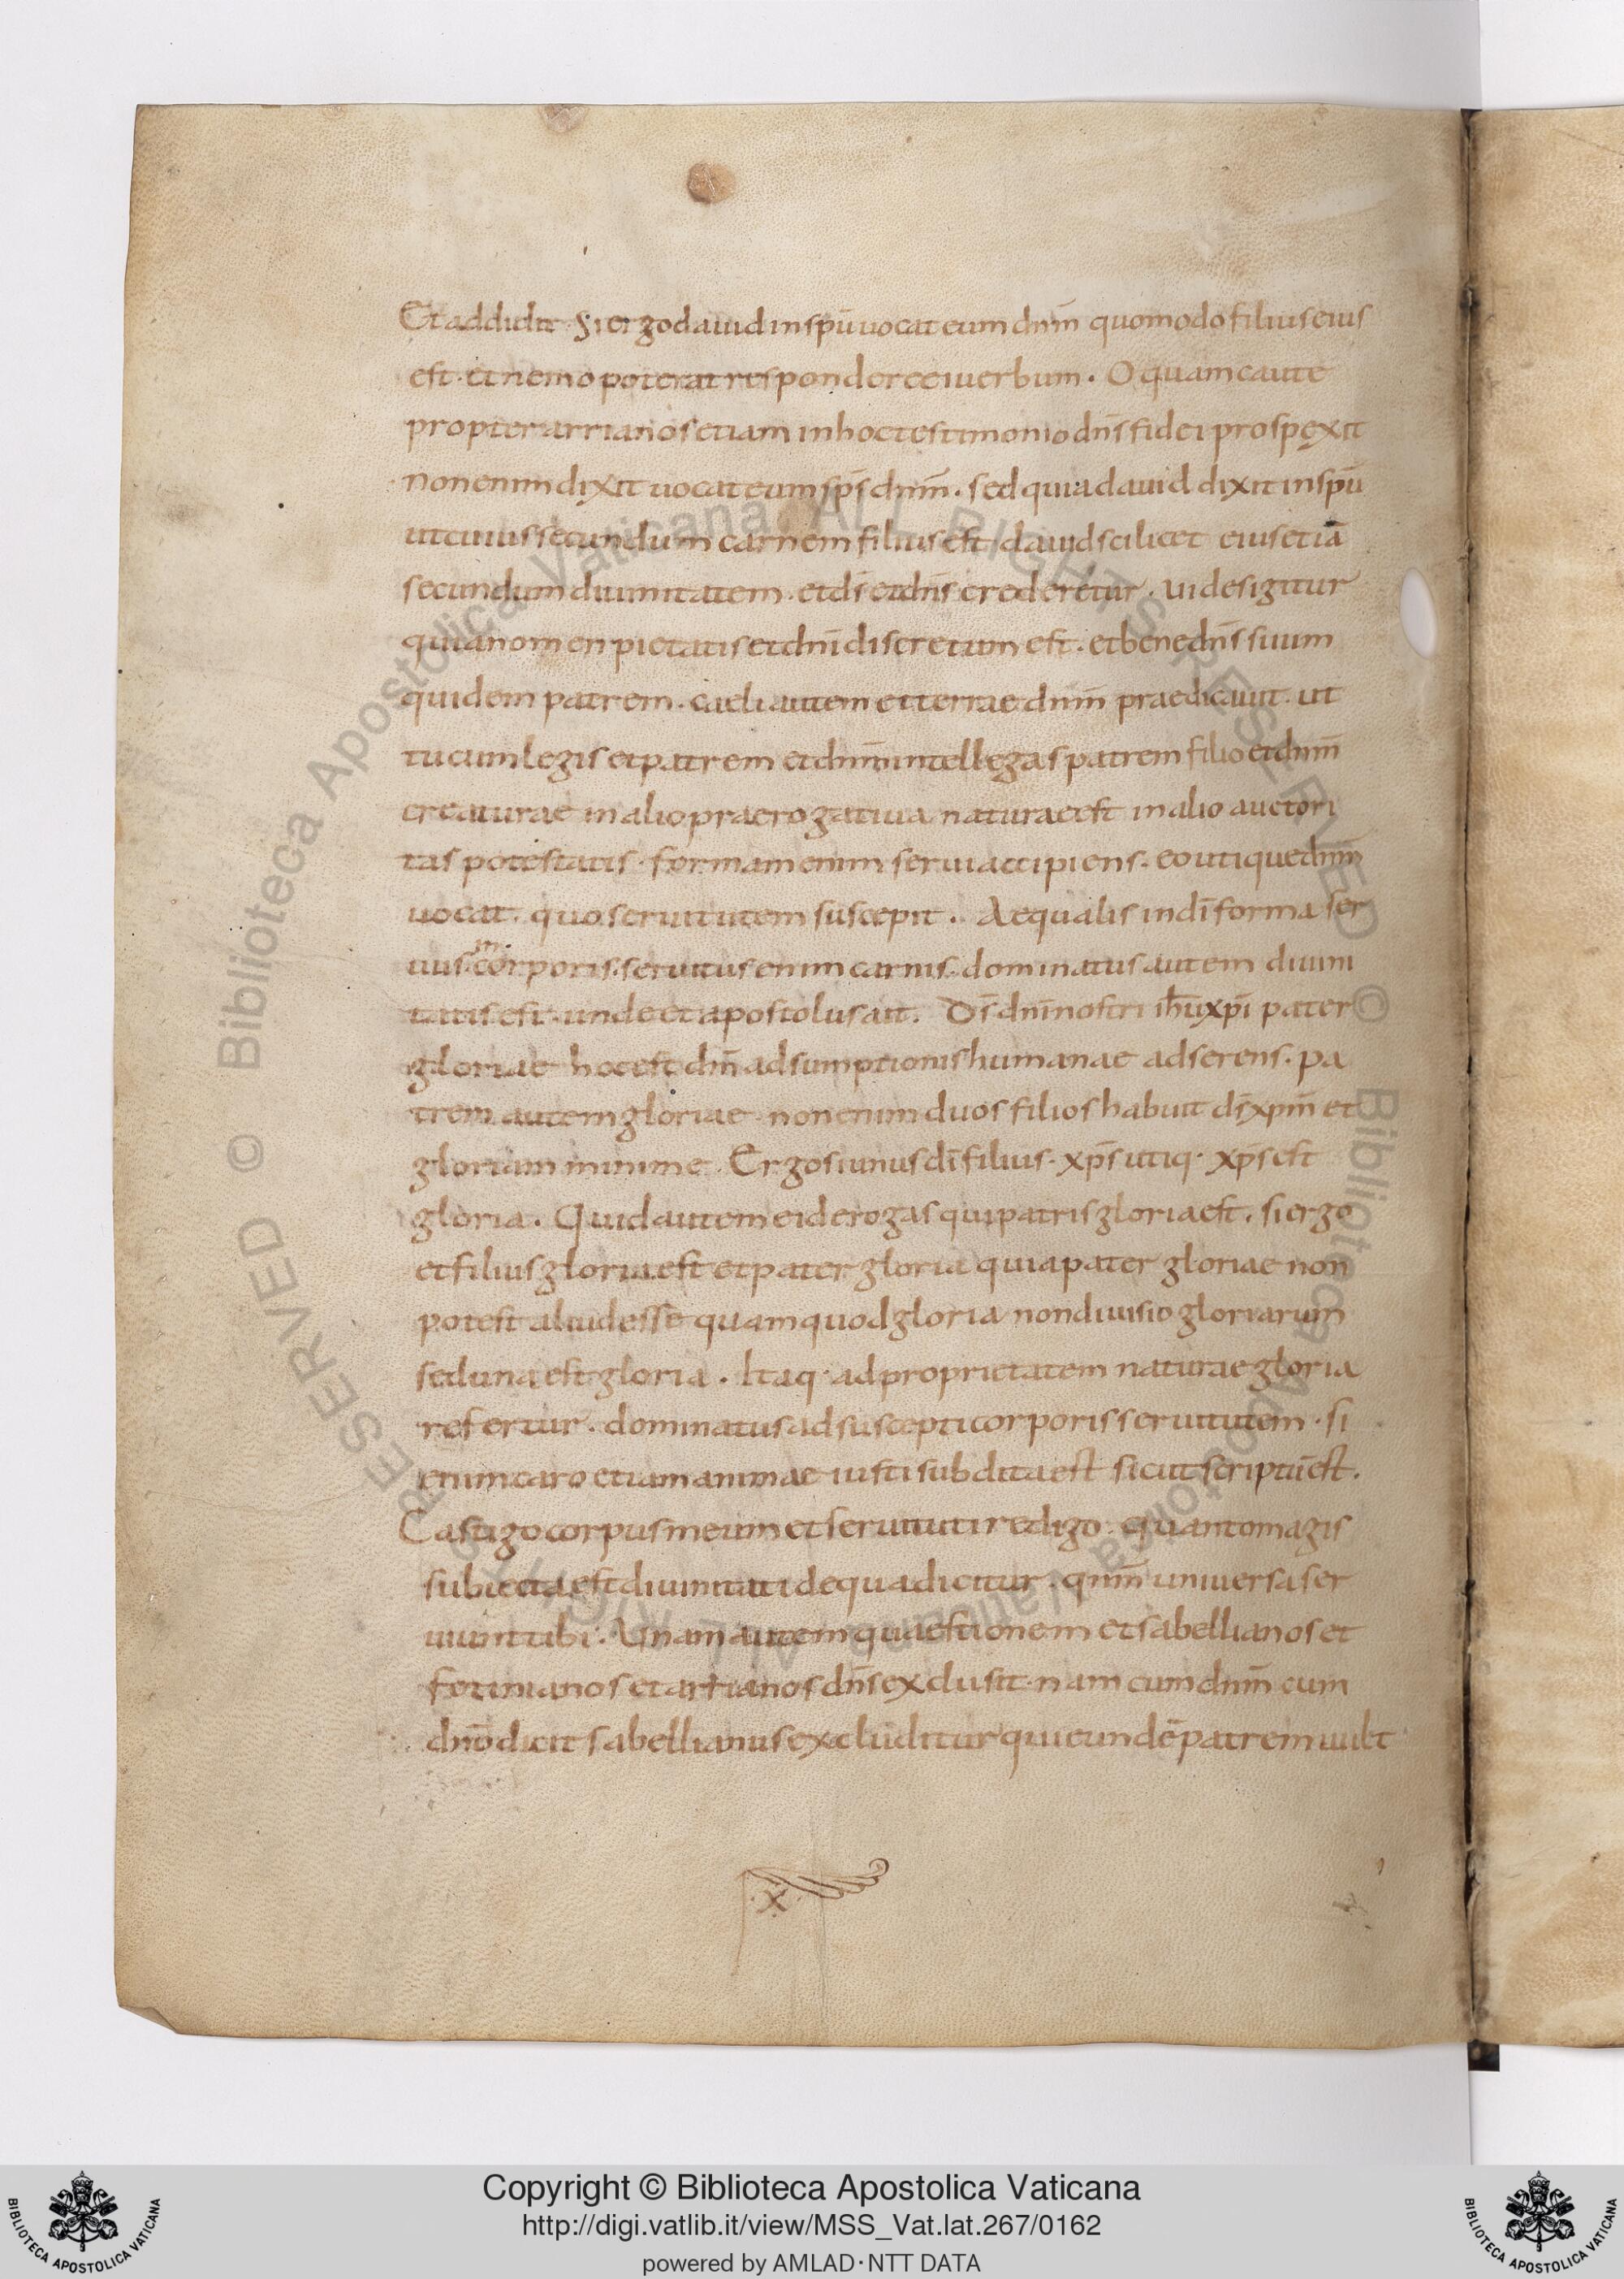 Et addidit Si ergo dauid in spū uocat eum dnm̄ quomodo filius eius
est · et nemo poterat respondere ei uerbum · O quam caute
propter arrianos etiam in hoc testimonio dn̄s fidei prospexit
non enim dixit uocat eum sp̄s dnm̄ · sed quia dauid dixit in spū
ut cuius secundum carnem filius est · dauid scilicet eius etiā
secundum diuinitatem · et ds̄ et dn̄s crederetur · uides igitur
quia nomen pietatis et dnī discretum est · et bene dn̄s suum
quidem patrem · caeli autem et terrae dnm̄ praedicauit · ut
tu cum legis et patrem et dnm̄ intellegas patrem filio et dnm̄
creaturae in alio praerogatiua naturae est in alio auctori
tas potestatis · formam enim serui accipiens · eo utique dnm̄
uocat · quo seruitutem suscepit · Aequalis in dī forma ser
uus in corporis · seruitus enim carnis · dominatus autem diuini
tatis est · unde et apostolus ait · Ds̄ dnī nostri ih̄u xp̄i pater
gloriae hoc est dn̄ adsumptionis humanae adserens · pa
trem autem gloriae · non enim duos filios habuit ds̄ xpm̄ et
gloriam minime · Ergo si unus dī filius · xp̄s utiq· xp̄s est
gloria · Quid autem ei derogas qui patris gloria est · si ergo
et filius gloria est et pater gloria quia pater gloriae non
potest aliud esse quam quod gloria non diuisio gloriarum
sed una est gloria · Itaq· ad proprietatem naturae gloria
refertur · dominatus ad suscepti corporis seruitutem · si
enim caro etiam animae iusti subdita est sicut scriptū est ·
Castigo corpus meum et seruituti redigo · quanto magis
subiecta est diuinitati de qua dicitur · qnm̄ uniuersa ser
uiunt tibi · Unam autem quaestionem et sabellianos et
fotinianos et arrianos dn̄s exclusit · nam cum dnm̄ eum
dnō dicit sabellianus excluditur qui eundē patrem uult
·X·
Biblioteca Apostolica Vaticana · ALL RIGHTS RESERVED ©
Biblioteca Apostolica Vaticana · ALL RIGHTS RESERVED ©
BIBLIOTECA APOSTOLICA VATICANA
Copyright © Biblioteca Apostolica Vaticana
http://digi.vatlib.it/view/MSS_Vat.lat.267/0162
powered by AMLAD·NTT DATA
BIBLIOTECA APOSTOLICA VATICANA